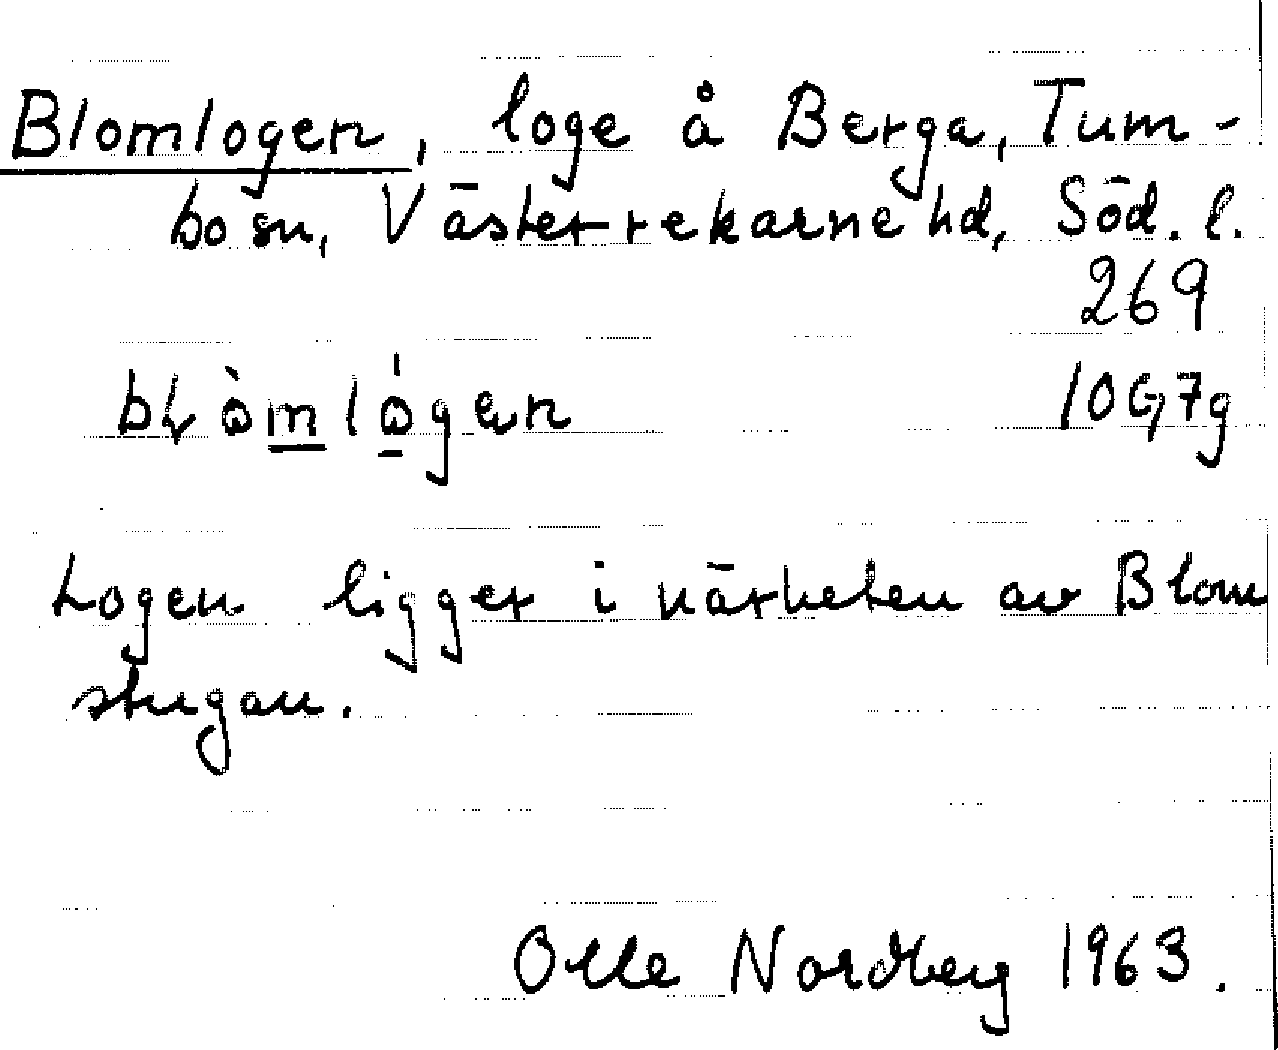 Blomlogen, loge å Berga, Tum-
bo sn, Västerrekarne hd, Söd. l.
269
bⱡòmlógen 10G7g
Logen ligger i närheten av Blom
stugan.
Olle Nordberg 1963.